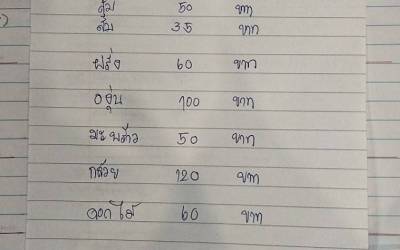 ส้ม 50 บาท
ส้ม 35 บาท
ฝรั่ง 60 บาท
องุ่น 100 บาท
มะพร้าว 50 บาท
กล้วย 120 บาท
ดอกไม้ 60 บาท